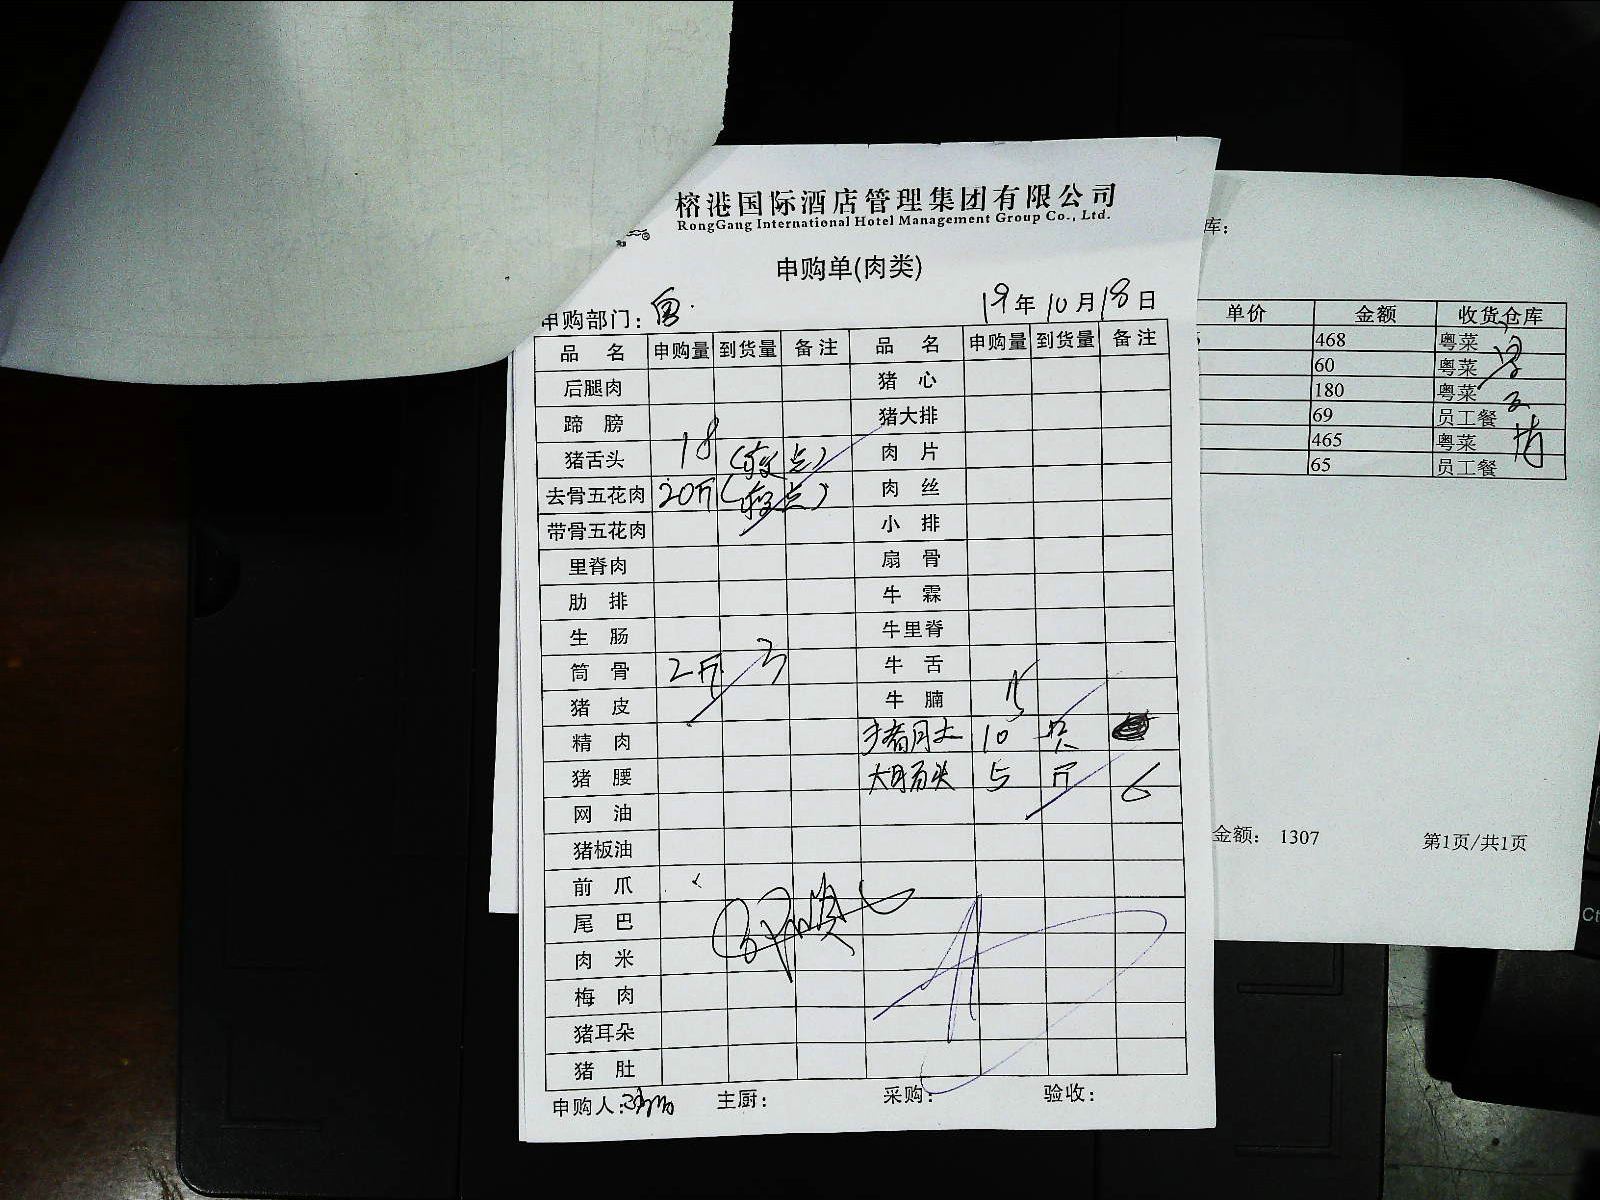 榕港国际酒店管理集团有限公司
RongGang International Hotel Management Group Co., Ltd.
申购单(肉类)
申购部门：
19年10月18日
品 名 申购量 到货量 备注 品 名 申购量 到货量 备注
后腿肉 猪 心
蹄 膀 猪大排
猪舌头 18 肉 片
去骨五花肉 20斤 肉 丝
带骨五花肉 小 排
里脊肉 扇 骨
肋 排 牛 霖
生 肠 牛里脊
筒 骨 2斤 3 牛 舌
猪 皮 牛 腩 15
精 肉 猪月土 10 只
猪 腰 5 斤 6
网 油
猪板油
前 爪
尾 巴
肉 米
梅 肉
猪耳朵
猪 肚
申购人： 主厨： 采购： 验收：
库：
单价 金额 收货仓库
468 粤菜
60 粤菜
180 粤菜
69 员工餐
465 粤菜
65 员工餐
金额： 1307 第1页/共1页